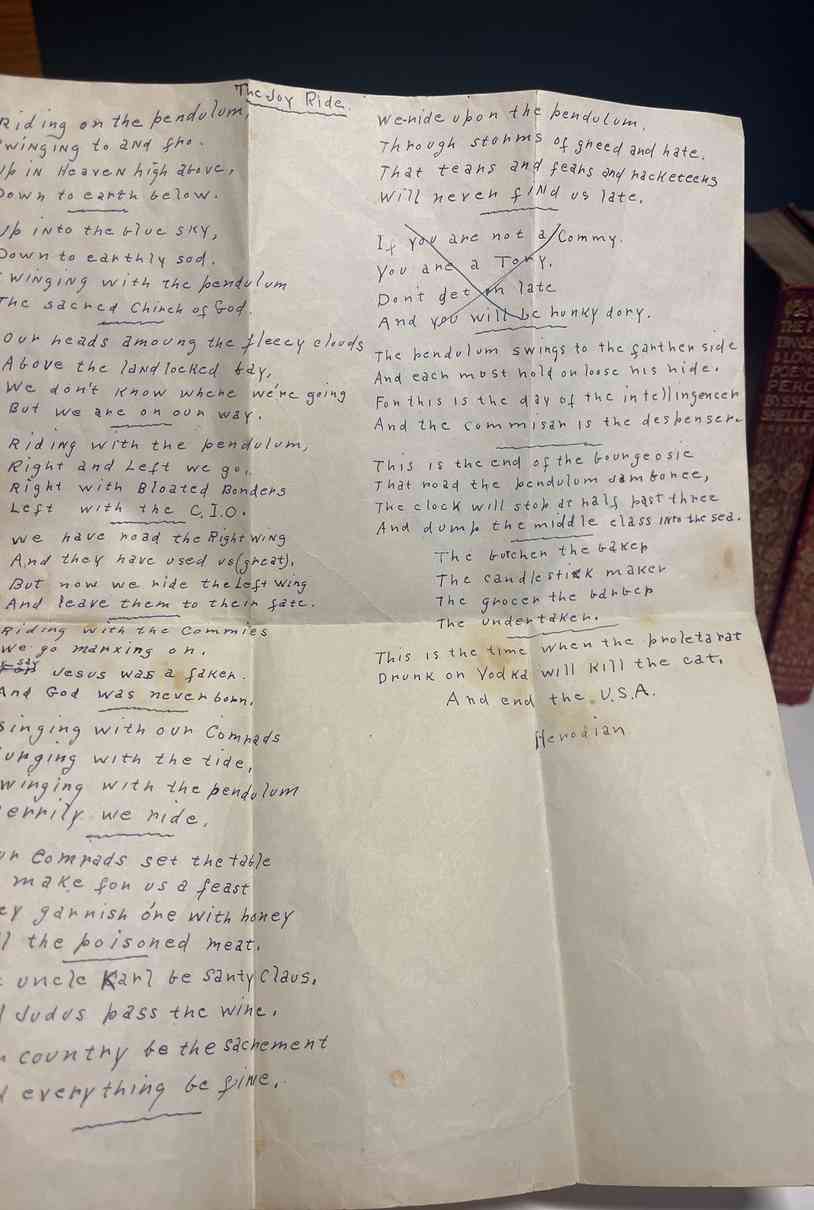 The Joy Ride.
Riding on the pendulum,
winging to and fro.
Up in Heaven high above,
Down to earth below.
Up into the blue sky,
Down to earthly sod.
winging with the pendulum
The sacred Chirch of God.
Our heads amoung the fleecy clouds
Above the landlocked bay,
We don't know where we're going
But we are on our way.
Riding with the pendulum,
Right and Left we go.
Right with Bloated Bonders
Left with the C.I.O.
We have road the Right wing
And they have used us (great).
But now we ride the Left wing
And leave them to their fate.
Riding with the Commies
We go marxing on.
say Jesus was a faker.
And God was never born.
singing with our Comrads
urging with the tide,
winging with the pendulum
errily we ride.
ur Comrads set the table
make for us a feast
ey garnish one with honey
ll the poisoned meat.
uncle Karl be Santy Claus,
Judus pass the wine.
country be the sacrement
everything be fine.
We ride upon the pendulum.
Through storms of greed and hate.
That tears and fears and racketeers
Will never find us late.
If you are not a Commy.
You are a Tory.
Don't get in late
And you will be hunky dory.
The pendulum swings to the farther side
And each must hold on loose his hide.
For this is the day of the intelligencer
And the commisar is the despenser.
This is the end of the bourgeosie
That road the pendulum Jamboree,
The clock will stop at half past three
And dump the middle class into the sea.
The butcher the baker
The candlestick maker
The grocer the barber
The undertaker.
This is the time when the proletarat
Drunk on Vodka will kill the cat,
And end the U.S.A.
Herodian
THE P
POE
PERC
BYSSHE
SHELLEY